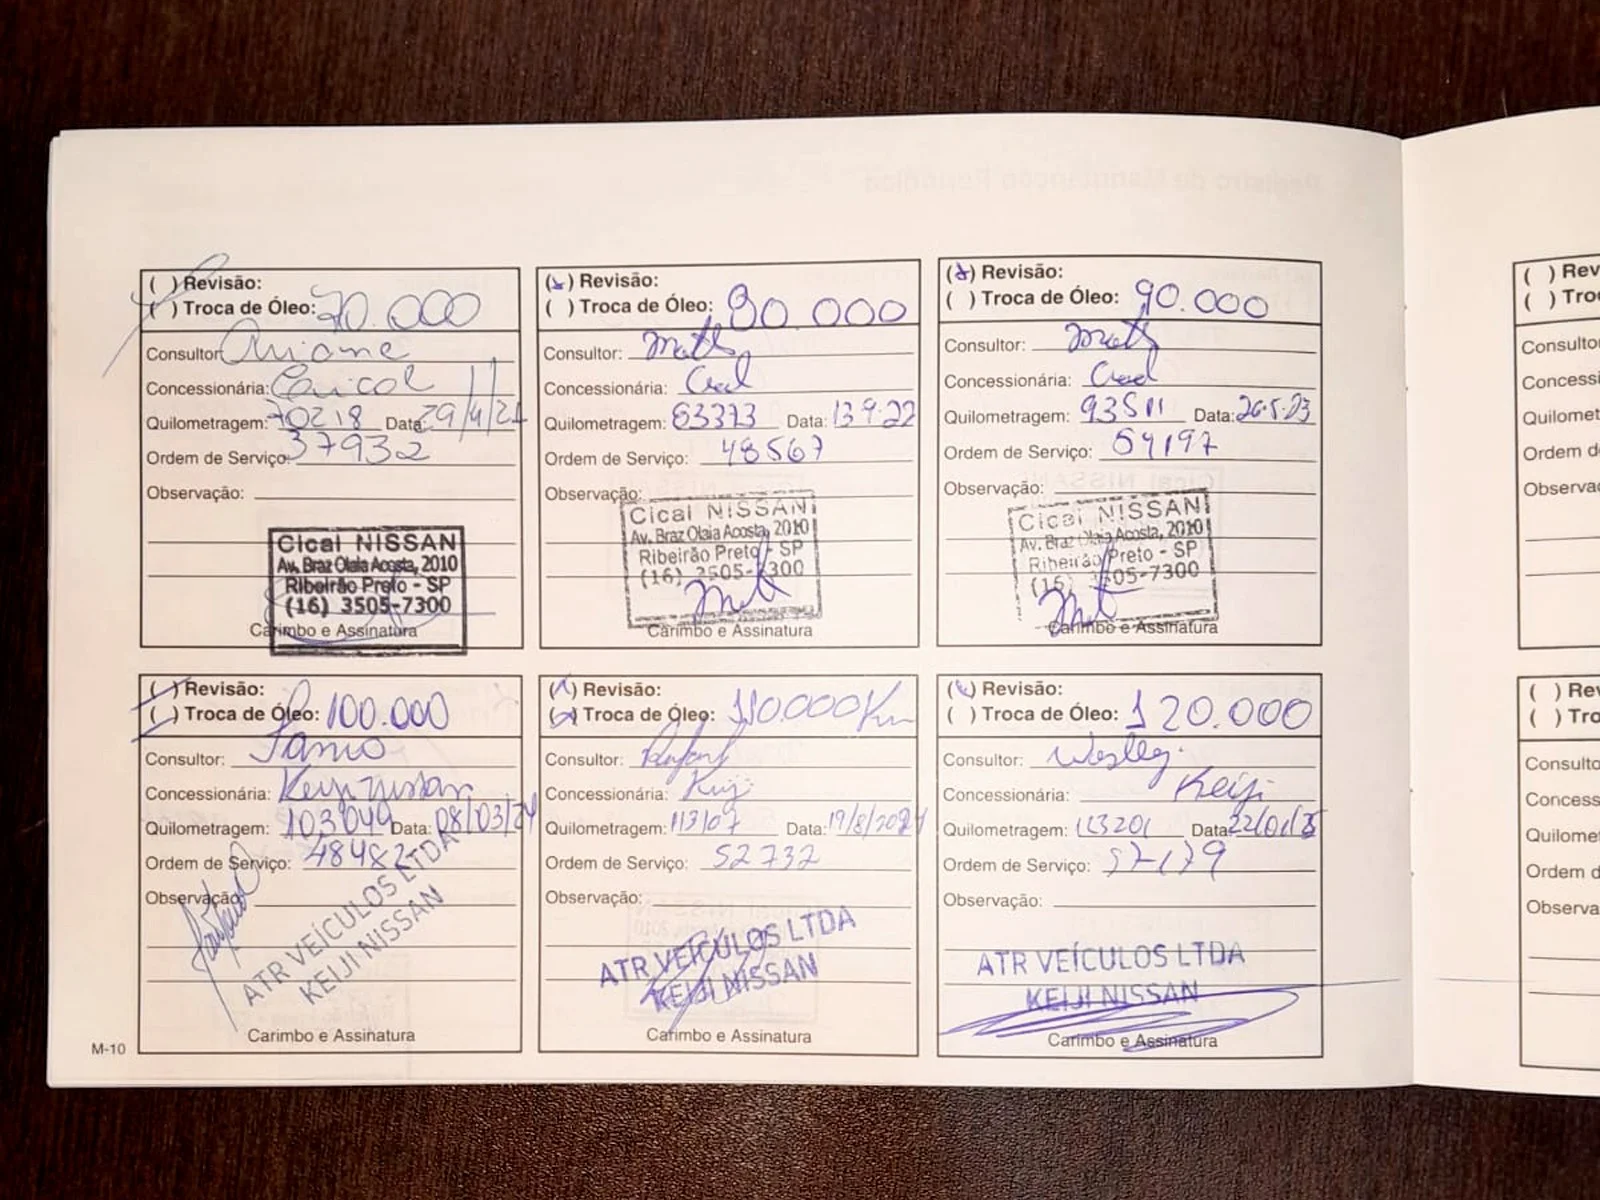 ( ) Revisão:
( ) Troca de Óleo: 70.000
Consultor: Ariane
Concessionária: Cical
Quilometragem: 70218 Data: 29/4/21
Ordem de Serviço: 37932
Observação:
Cical NISSAN
Av. Braz Olaia Acosta, 2010
Ribeirão Preto - SP
(16) 3505-7300
Carimbo e Assinatura
( ) Revisão:
( ) Troca de Óleo: 80.000
Consultor: Math
Concessionária: Cical
Quilometragem: 83373 Data: 13.9.22
Ordem de Serviço: 48567
Observação:
Cical NISSAN
Av. Braz Olaia Acosta, 2010
Ribeirão Preto - SP
(16) 3505-7300
Carimbo e Assinatura
(x) Revisão:
( ) Troca de Óleo: 90.000
Consultor: Math
Concessionária: Cical
Quilometragem: 93511 Data: 26.5.23
Ordem de Serviço: 54197
Observação:
Cical NISSAN
Av. Braz Olaia Acosta, 2010
Ribeirão Preto - SP
(16) 3505-7300
Carimbo e Assinatura
( ) Revisão:
( ) Troca de Óleo: 100.000
Consultor:
Concessionária: Keiji Nissan
Quilometragem: 103049 Data: 08/03/24
Ordem de Serviço: 48482
Observação:
ATR VEÍCULOS LTDA
KEIJI NISSAN
Carimbo e Assinatura
(x) Revisão:
(x) Troca de Óleo: 110.000 Km
Consultor: Rafael
Concessionária: Keiji
Quilometragem: 113107 Data: 19/8/2024
Ordem de Serviço: 52732
Observação:
ATR VEÍCULOS LTDA
KEIJI NISSAN
Carimbo e Assinatura
( ) Revisão:
( ) Troca de Óleo: 120.000
Consultor: Wesley
Concessionária: Keiji
Quilometragem: 123201 Data: 22/01/25
Ordem de Serviço: 57179
Observação:
ATR VEÍCULOS LTDA
KEIJI NISSAN
Carimbo e Assinatura
M-10
( ) Rev
( ) Tro
Consulto
Concessi
Quilomet
Ordem d
Observa
( ) Re
( ) Tro
Consulto
Concess
Quilome
Ordem d
Observa